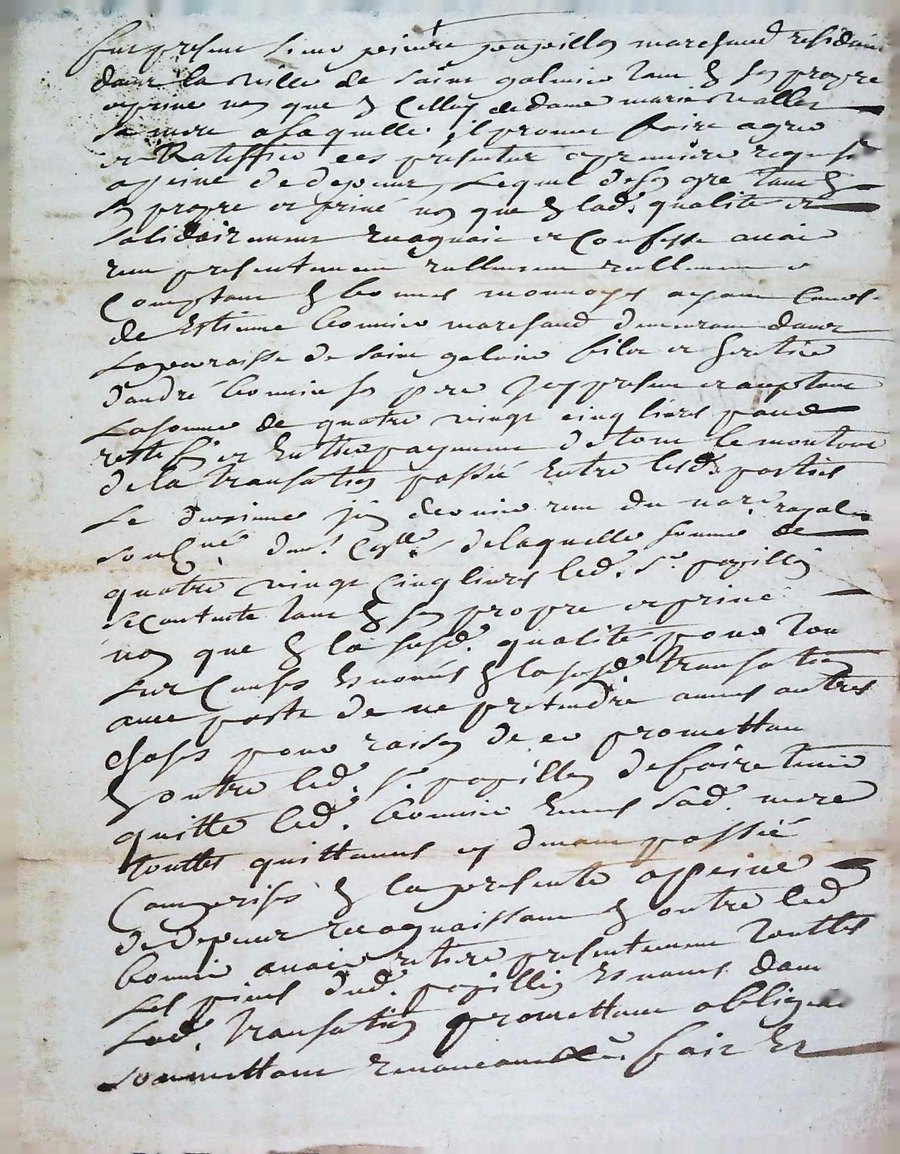 fut present sieur pierre papillon marchand residant
dans la ville de saint galmier tant en son propre
et privé nom que en celluy de dame marie valler
sa mere a laquelle il promet faire agreer
et Ratiffier ces presentes a premiere requise
a peine de depens, Lequel de son gré tant en
son propre et privé nom que en lad. qualité et
solidairement recognait et Confesse avoir
reçu presentement reellement
Comptant en bonnes monnoyes ayant Cours
de Estienne bonnier marchand demeurant dans
La parroisse de saint galmier filz et heritier
d'andré bonnier son pere icy present et acceptant
La somme de quatre vingt cinq livres pour
reste et Entier payement de tout le montant
de la transaction passée Entre lesd. parties
Le juin dernier reçu du not. royal
soussigné de laquelle somme de
quatre vingt Cinq livres led. sr. papillon
se contente tant en son propre et privé
nom que en la susd. qualité pour tout
sur Causes Enoncés en lasusd. transaction
avec pacte de ne pretendre autres
choses pour raison de ce promettant
en outre led. sr. papillon de faire tenir
quitte led. bonnier Envers sad. mere
touttes quittances cy devant passée
Comprises en la presente a peine
de depens recognaissant en outre led
bonnier avoir retiré presentement touttes
Les pieces dud. papillon Enoncés dans
Lad. transaction promettant obligeant
soumettant renonceant &c. fait Et